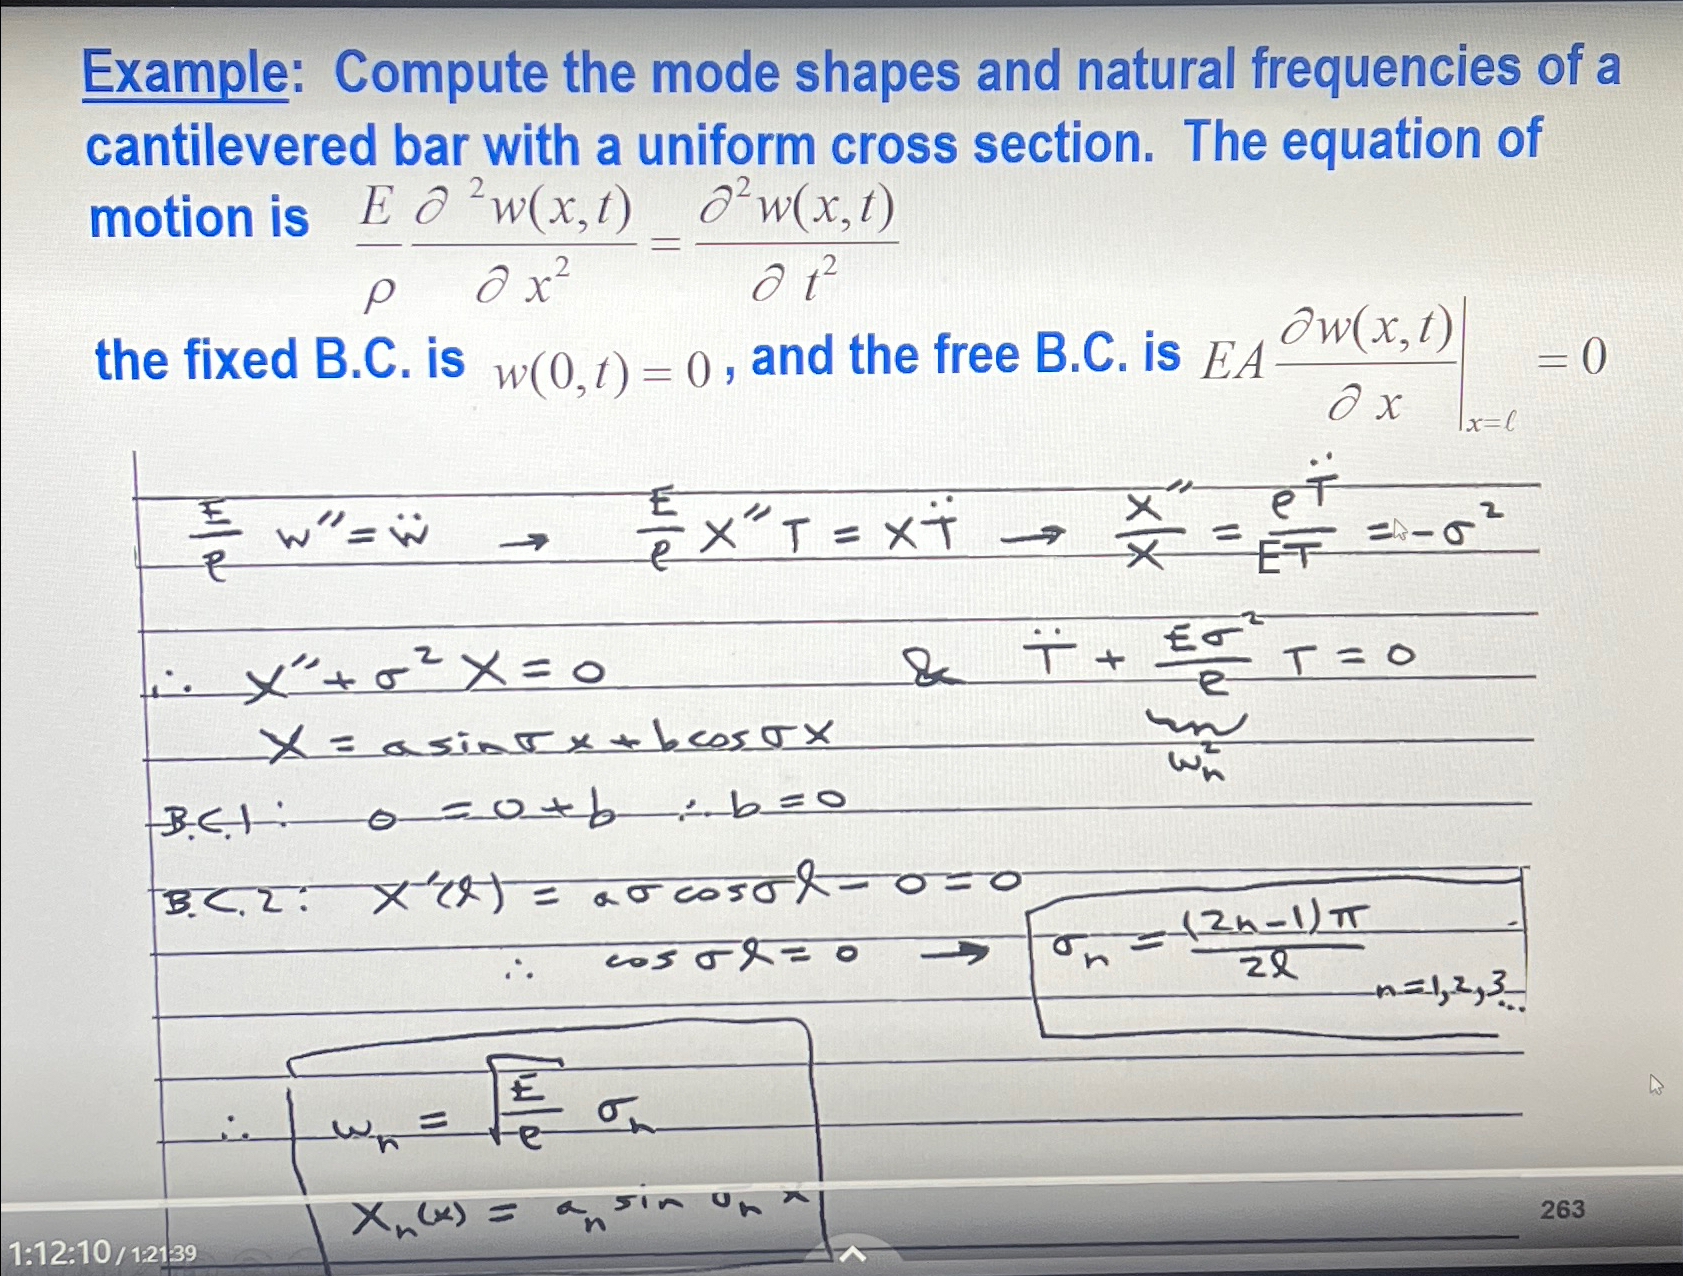 Example: Compute the mode shapes and natural frequencies of a
cantilevered bar with a uniform cross section. The equation of
motion is E/ρ ∂²w(x,t)/∂x² = ∂²w(x,t)/∂t²
the fixed B.C. is w(0,t) = 0, and the free B.C. is EA ∂w(x,t)/∂x |x=ℓ = 0
E/ρ w″ = ẅ → E/ρ X″T = XT̈ → X″/X = ρT̈/ET = -σ²
∴ X″ + σ²X = 0 & T̈ + Eσ²/ρ T = 0
X = a sin σx + b cos σx ωn²
B.C.1: 0 = 0 + b ∴ b = 0
B.C.2: X′(ℓ) = aσ cos σℓ - 0 = 0
∴ cos σℓ = 0 → σn = (2n-1)π/2ℓ n=1,2,3...
∴ ωn = √(E/ρ) σn
Xn(x) = an sin σn x
263
1:12:10 / 1:21:39